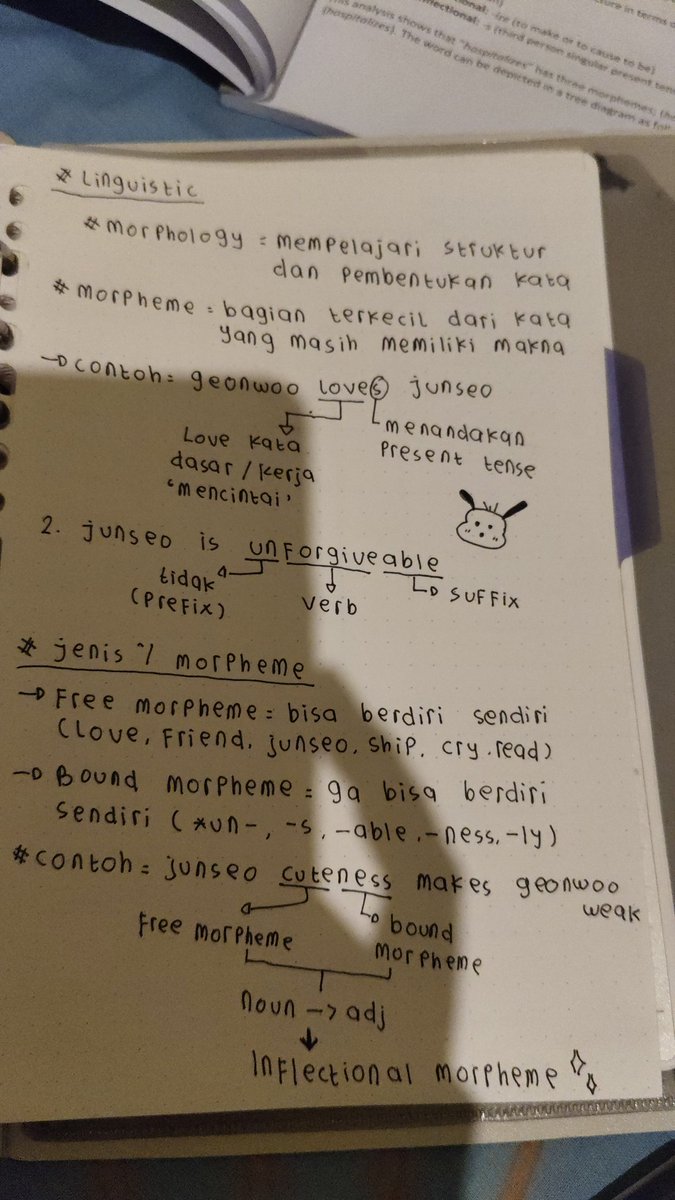 ure in terms o
tional: -ize (to make or to cause to be)
nflectional: -s (third person singular present ten
his analysis shows that "hospitalizes" has three morphemes, (h
(hospitalizes). The word can be depicted in a tree diagram as foll
* Linguistic
* morphology = mempelajari struktur
dan pembentukan kata
* morpheme = bagian terkecil dari kata
yang masih memiliki makna
→ contoh = geonwoo loves junseo
Love kata
dasar / kerja
'mencintai'
menandakan
present tense
2. junseo is unforgiveable
tidak
(prefix)
verb
suffix
* jenis "/ morpheme
→ Free morpheme = bisa berdiri sendiri
(Love, Friend, junseo, ship, cry. read)
→ Bound morpheme = ga bisa berdiri
sendiri (*un-, -s, -able, -ness, -ly)
* contoh = junseo cuteness makes geonwoo
weak
Free morpheme
bound
morpheme
noun -> adj
Inflectional morpheme